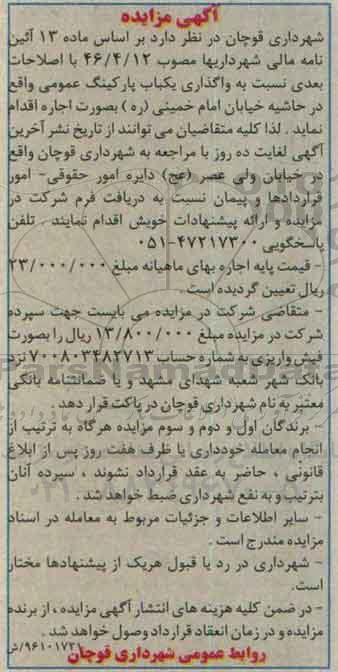 آگهی مزایده
شهرداری قوچان در نظر دارد بر اساس ماده ۱۳ آئین
نامه مالی شهرداریها مصوب ۴۶/۴/۱۲ با اصلاحات
بعدی نسبت به واگذاری یکباب پارکینگ عمومی واقع
در حاشیه خیابان امام خمینی (ره) بصورت اجاره اقدام
نماید . لذا کلیه متقاضیان می توانند از تاریخ نشر آخرین
آگهی لغایت ده روز با مراجعه به شهرداری قوچان واقع
در خیابان ولی عصر (عج) دایره امور حقوقی- امور
قراردادها و پیمان نسبت به دریافت فرم شرکت در
مزایده و ارائه پیشنهادات خویش اقدام نمایند . تلفن
پاسخگویی ۴۷۲۱۷۳۰۰-۰۵۱
- قیمت پایه اجاره بهای ماهیانه مبلغ ۲۳/۰۰۰/۰۰۰
ریال تعیین گردیده است .
- متقاضی شرکت در مزایده می بایست جهت سپرده
شرکت در مزایده مبلغ ۱۳/۸۰۰/۰۰۰ ریال را بصورت
فیش واریزی به شماره حساب ۷۰۰۸۰۳۴۸۲۷۱۳ نزد
بانک شهر شعبه شهدای مشهد و یا ضمانتنامه بانکی
معتبر به نام شهرداری قوچان در پاکت قرار دهد .
- برندگان اول و دوم و سوم مزایده هرگاه به ترتیب از
انجام معامله خودداری یا ظرف هفت روز پس از ابلاغ
قانونی ، حاضر به عقد قرارداد نشوند ، سپرده آنان
بترتیب و به نفع شهرداری ضبط خواهد شد .
- سایر اطلاعات و جزئیات مربوط به معامله در اسناد
مزایده مندرج است .
- شهرداری در رد یا قبول هریک از پیشنهادها مختار
است.
- در ضمن کلیه هزینه های انتشار آگهی مزایده ، از برنده
مزایده و در زمان انعقاد قرارداد وصول خواهد شد .
روابط عمومی شهرداری قوچان
ParsNamadData